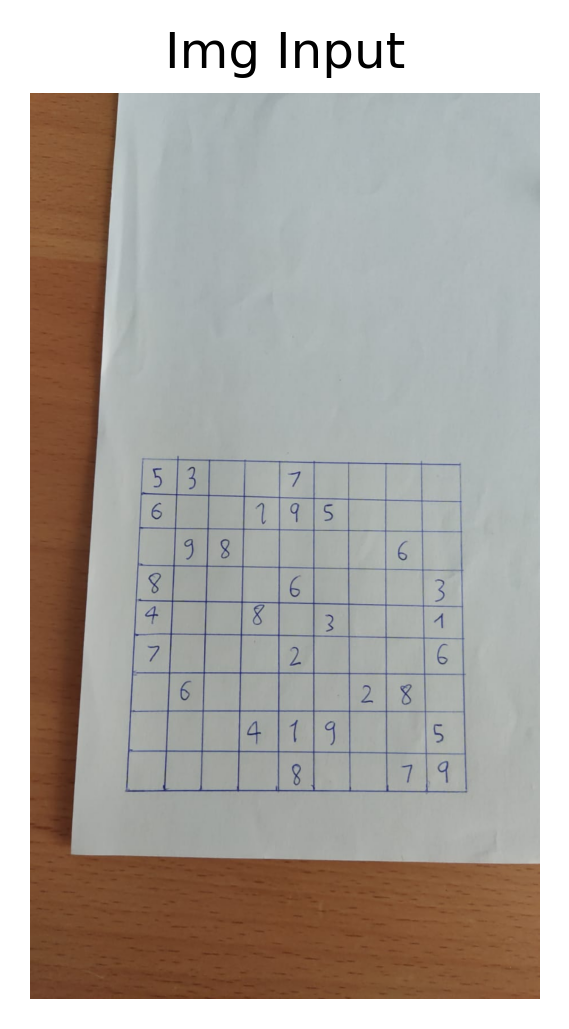 Img Input
5 3 7
6 1 9 5
9 8 6
8 6 3
4 8 3 1
7 2 6
6 2 8
4 1 9 5
8 7 9